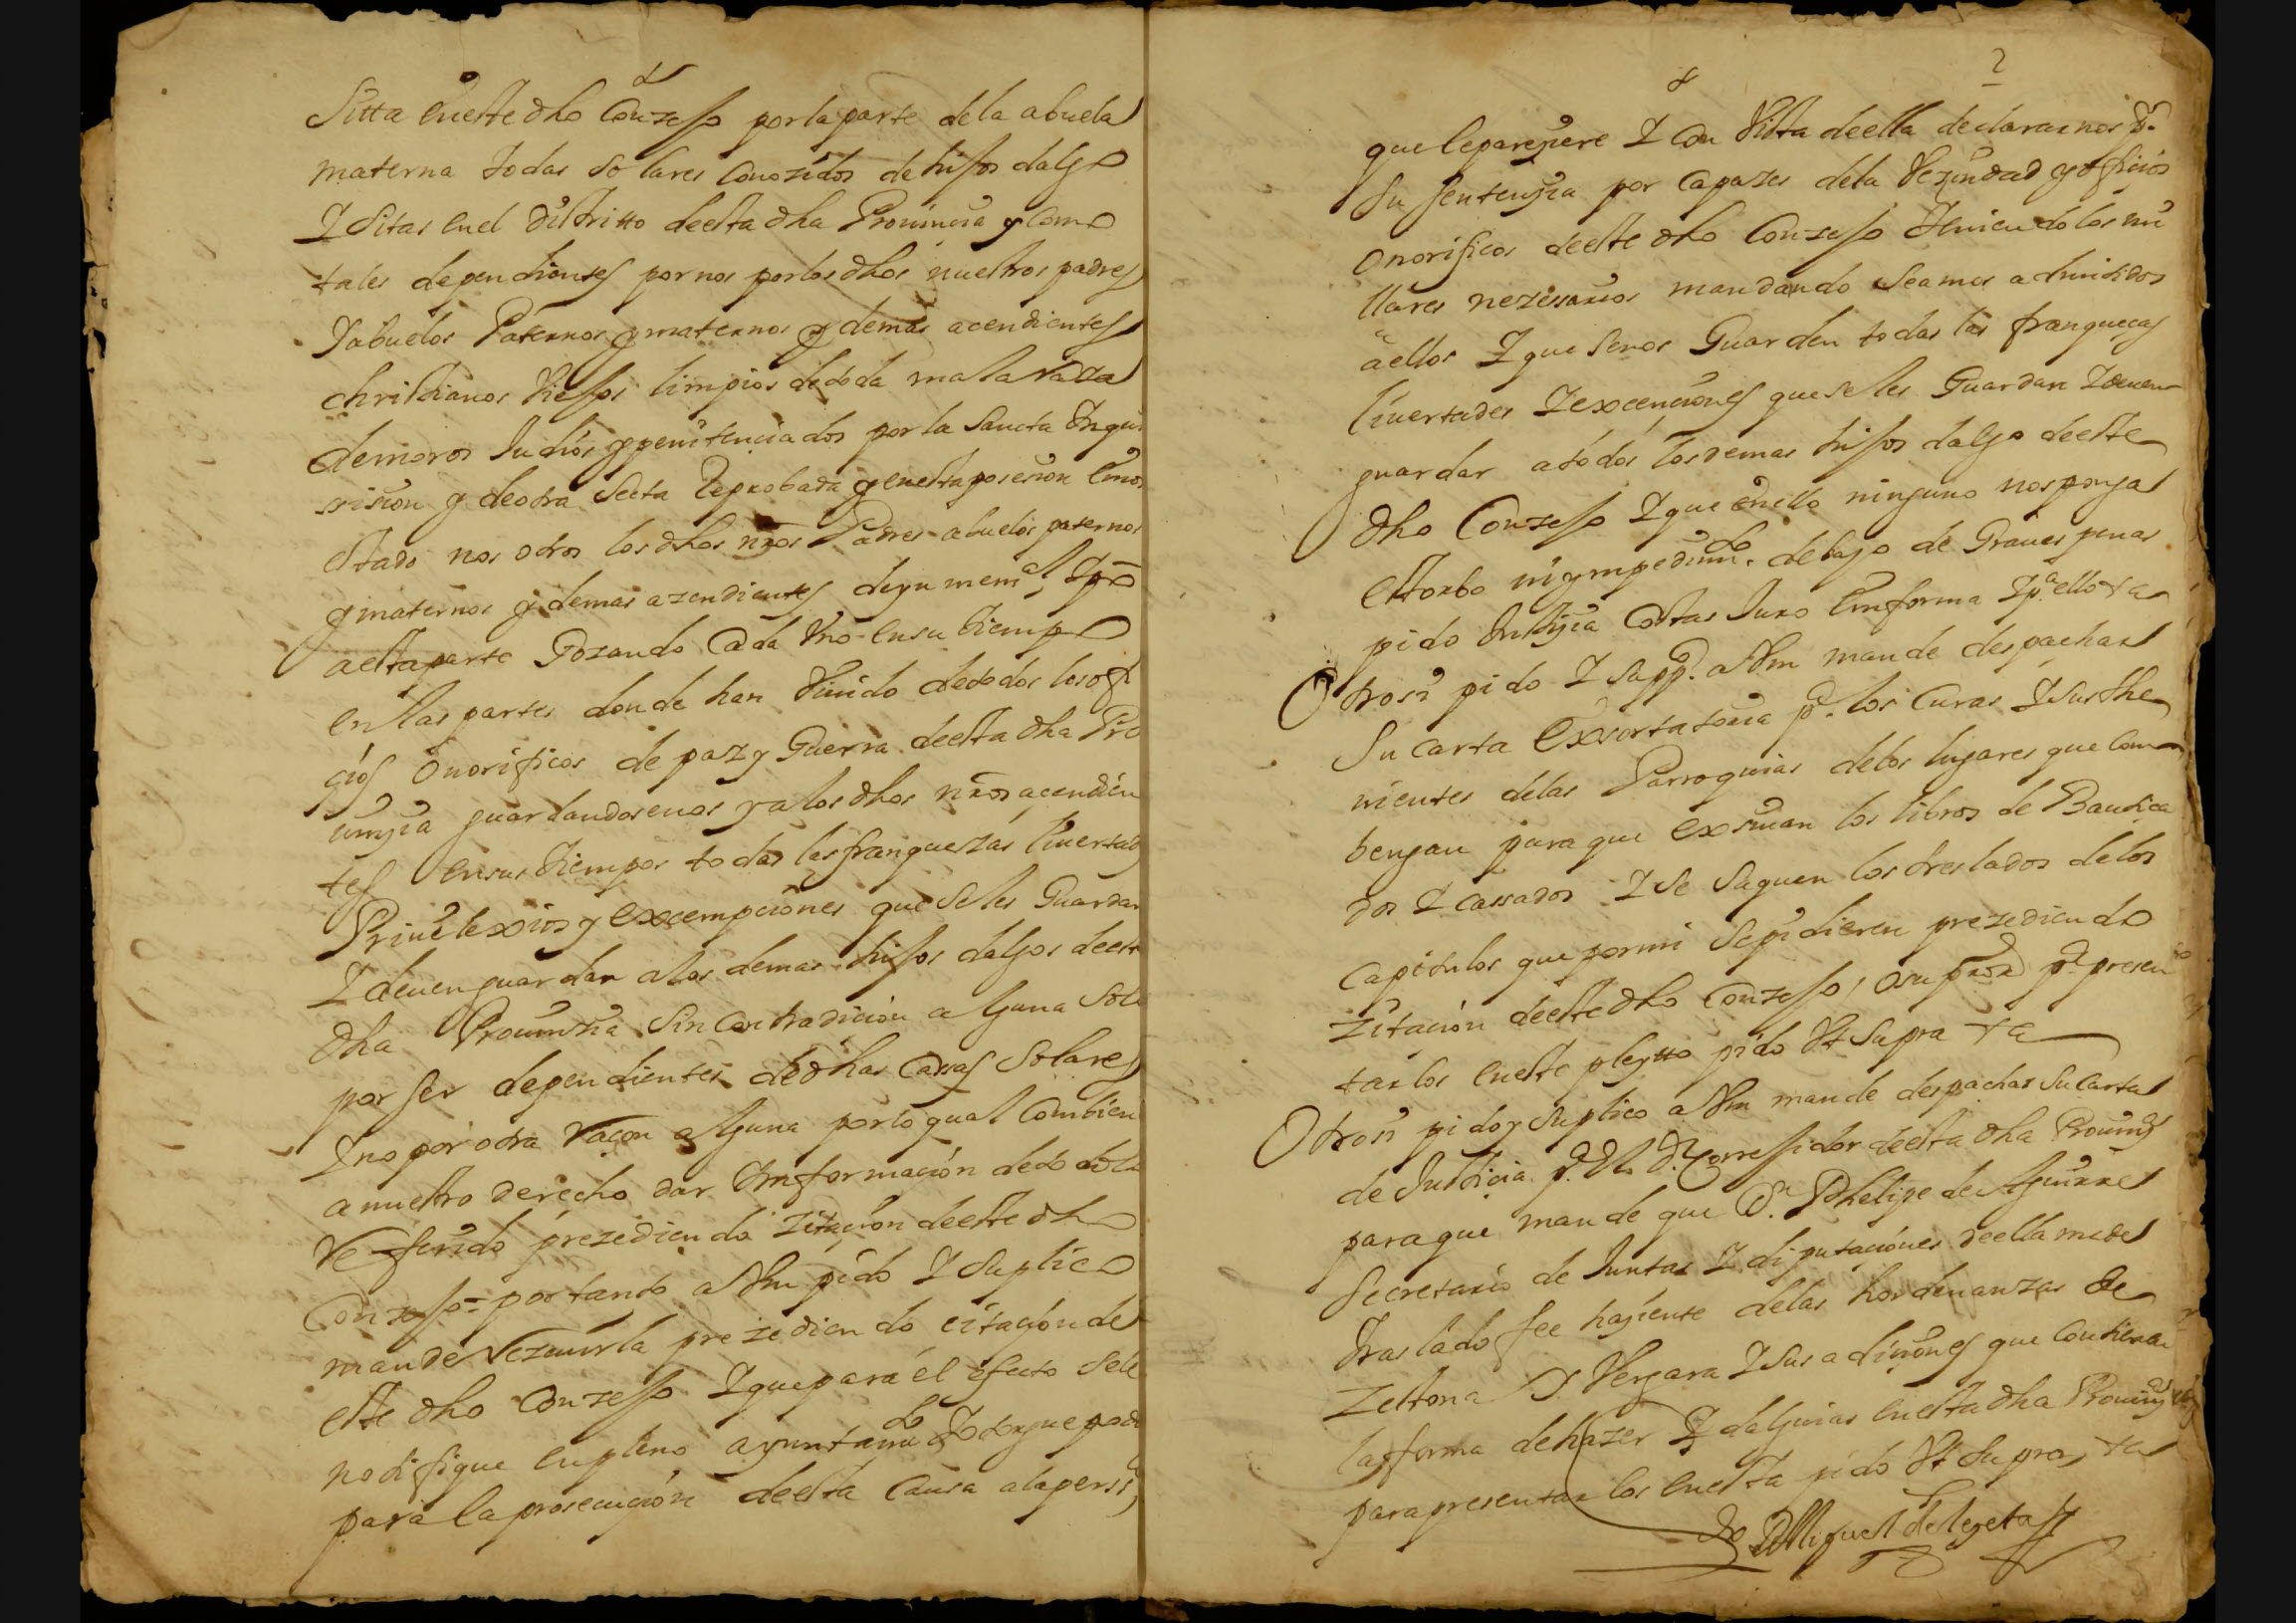 Sitta en este dho Conzejo por la parte de la abuela
materna todas solares conozidos de hijos dalgo
Y sitas en el distritto de esta dha Prouincia y como
tales dependientes por nos por los dhos nuestros padres
Y abuelos Paternos y maternos y demas acendientes
christianos viejos limpios de toda mala raza
de moros Judios y penitenciados por la Sancta Inqui
sision y de otra secta reprobada y en esta posesion emos
estado nosotros los dhos nros Padres abuelos paternos
y maternos y demas azendientes de ynmeml tpo
a esta parte Gozando Cada Vno en su tiempo
en las partes donde han viuido de todos los ofi
çios onorificos de paz y Guerra de esta dha Pro
uinçia guardandosenos y a los dhos nros acendien
tes en sus tiempos todas las franquezas liuertad
Priuilexios y excempciones que se les Guardan
Y deuen guardar a los demas hijos dalgos de esta
dha Prouinzia sin Contradicion alguna solo
por ser dependientes de dhas Casas Solares
Y no por otra raçon alguna por lo qual Combiene
a nuestro derecho dar Imformacion de todo lo
Referido prezediendo zitaçion de este dho
Conzejo = por tanto a Vm pido Y suplico
mande rezeuirla prezediendo citaçion de
este dho Conzejo Y que para el efecto se le
notifique en pleno ayuntamto Y otorgue pode
para la prosecuçion de esta Causa a la perso
2
que le pareçiere Y con Vista de ella declararnos pr
su sentençia por capazes de la Vezindad y ofiçios
onorificos de este dho Conzejo teniendo los mi
llares nezessarios mandando seamos admitidos
a ellos Y que se nos Guarden todas las franqueças
liuertades Y exçenciones que se les Guardan Y deuen
guardar a todos los demas hijos dalgo de este
dho Conzejo Y que en ello ninguno nos ponga
estorbo ni ympedimto debajo de Graues penas
pido Justiçia Costas Juro en forma Y pa ello ta
Otrosi pido Y suppco a Vm mande despachar
su carta Exsortatoria pa los Curas Y sus the
nientes de las Parroquias de los lugares que Com
bengan para que Exsiuan los libros de Bautiça
dos Y cassados Y se saquen los treslados de los
capitulos que por mi se pidieren prezediendo
zitacion de este dho Conzejo, o su pror pa presen
tarlos en este pleytto pido Vt supra ta
Otrosi pido y suplico a Vm mande despachar su carta
de Justicia pa el Sr Corregidor de esta dha Prouinça
para que mande que Dn Phelipe de Aguirre
secretario de Juntas Y diputaçiones de ella me de
traslado fee haçiente de las hordenanzas de
Zestona Y Vergara Y sus adiçiones que Contienen
la forma de hazer Ydalguias en esta dha Prouinça
para presentarlos en esta pido Vt supra, ta
Miguel de Legeta